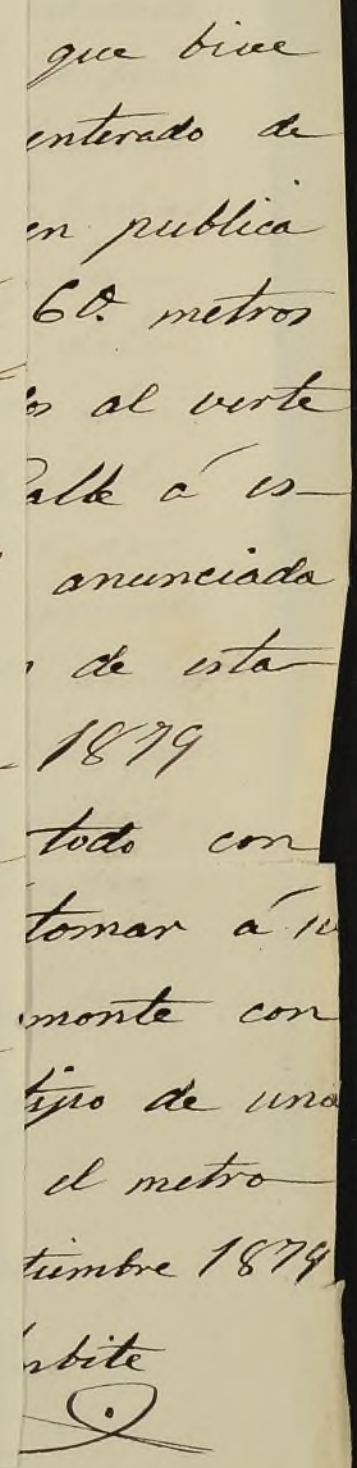 que bive
enterado de
en publica
60. metros
os al verte
alle á es-
anunciada
de esta
1879
todo con
tomar á
monte con
tipo de una
el metro
tiembre 1879
rbite